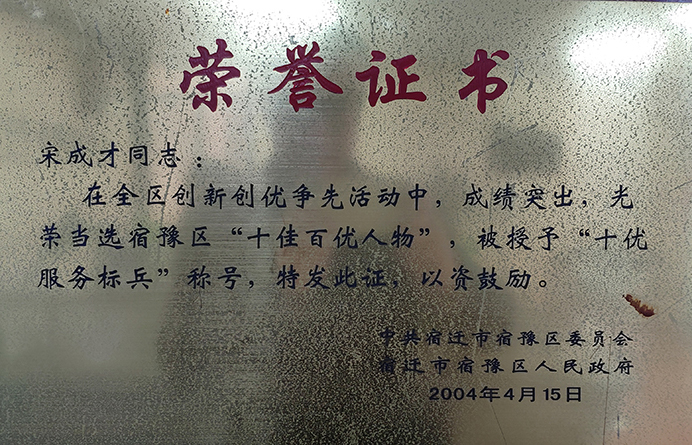 荣誉证书
宋成才同志：
在全区创新创优争先活动中，成绩突出，光
荣当选宿豫区“十佳百优人物”，被授予“十优
服务标兵”称号，特发此证，以资鼓励。
中共宿迁市宿豫区委员会
宿迁市宿豫区人民政府
2004年4月15日